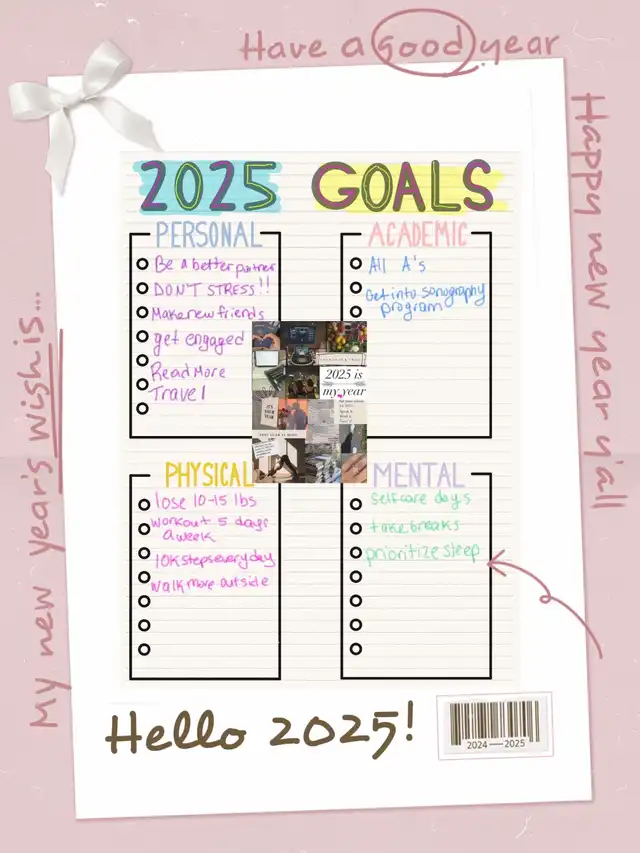 Have a Good year
Happy new year y'all
My new year's Wish is...
2025 GOALS
PERSONAL
Be a better partner
DON'T STRESS!!
Make new friends
get engaged
Read More
Travel
ACADEMIC
All A's
Get into sonography
program
2025 is
my year
PHYSICAL
lose 10-15 lbs
workout 5 days
a week
10K steps everyday
walk more outside
MENTAL
selfcare days
take breaks
prioritize sleep
Hello 2025!
2024 — 2025